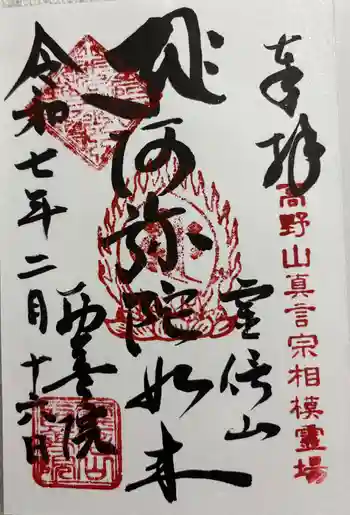 奉拝
高野山真言宗相模霊場
霊
山
阿弥陀如来
院
令和七年二月十六日